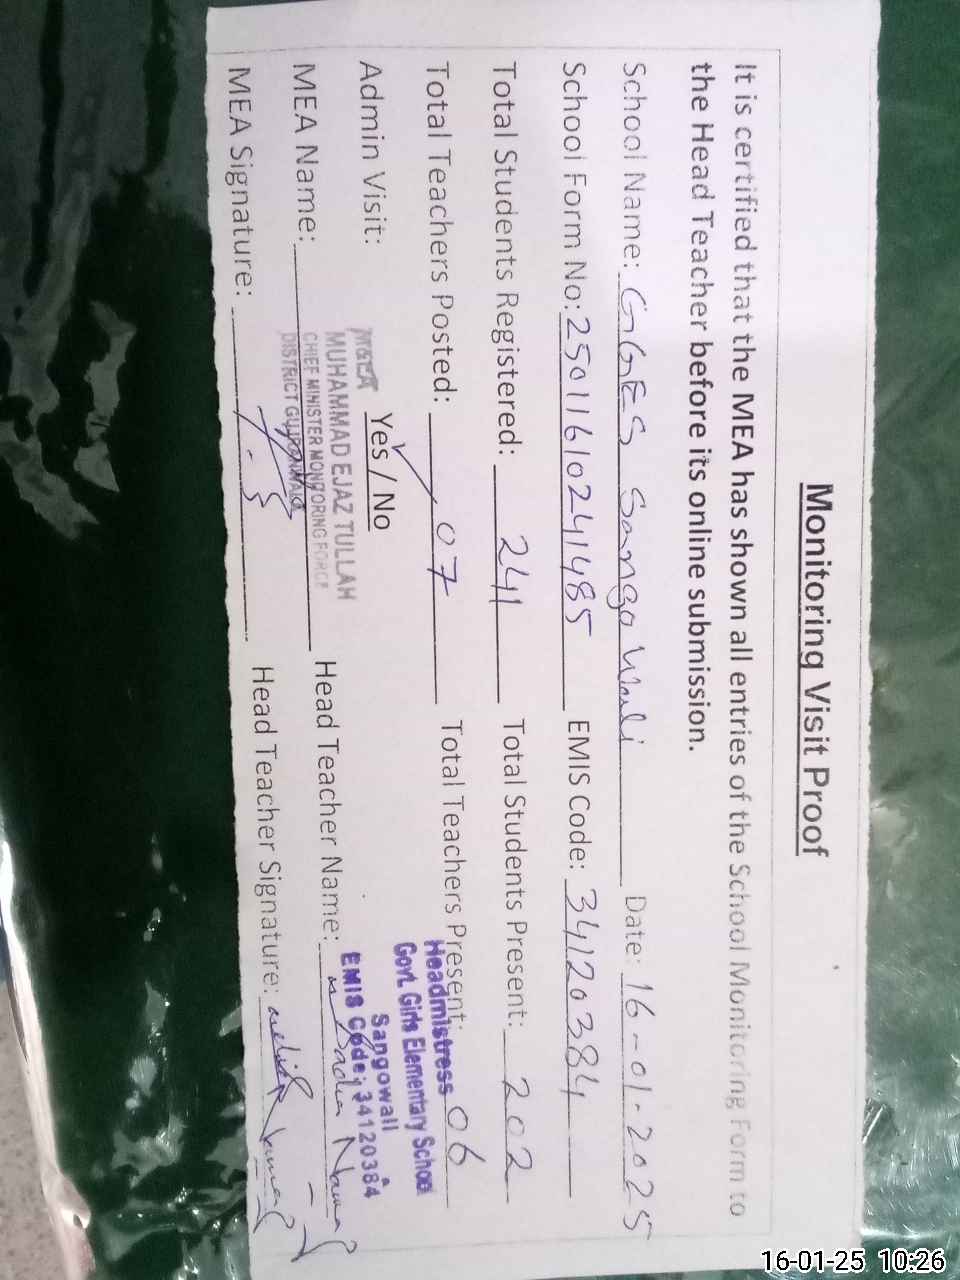 Monitoring Visit Proof
It is certified that the MEA has shown all entries of the School Monitoring Form to
the Head Teacher before its online submission.
School Name: GGES Sango Wali Date: 16-01-2025
School Form No: 25011610241485 EMIS Code: 34120384
Total Students Registered: 241 Total Students Present: 202
Total Teachers Posted: 07 Total Teachers Present: 06
Headmistress
Govt. Girls Elementary School
Sangowali
EMIS Code: 34120384
Admin Visit: Yes / No
MEA
MUHAMMAD EJAZ TULLAH
CHIEF MINISTER MONITORING FORCE
DISTRICT GUJRANWALA
MEA Name: Head Teacher Name:
MEA Signature: Head Teacher Signature:
16-01-25 10:26